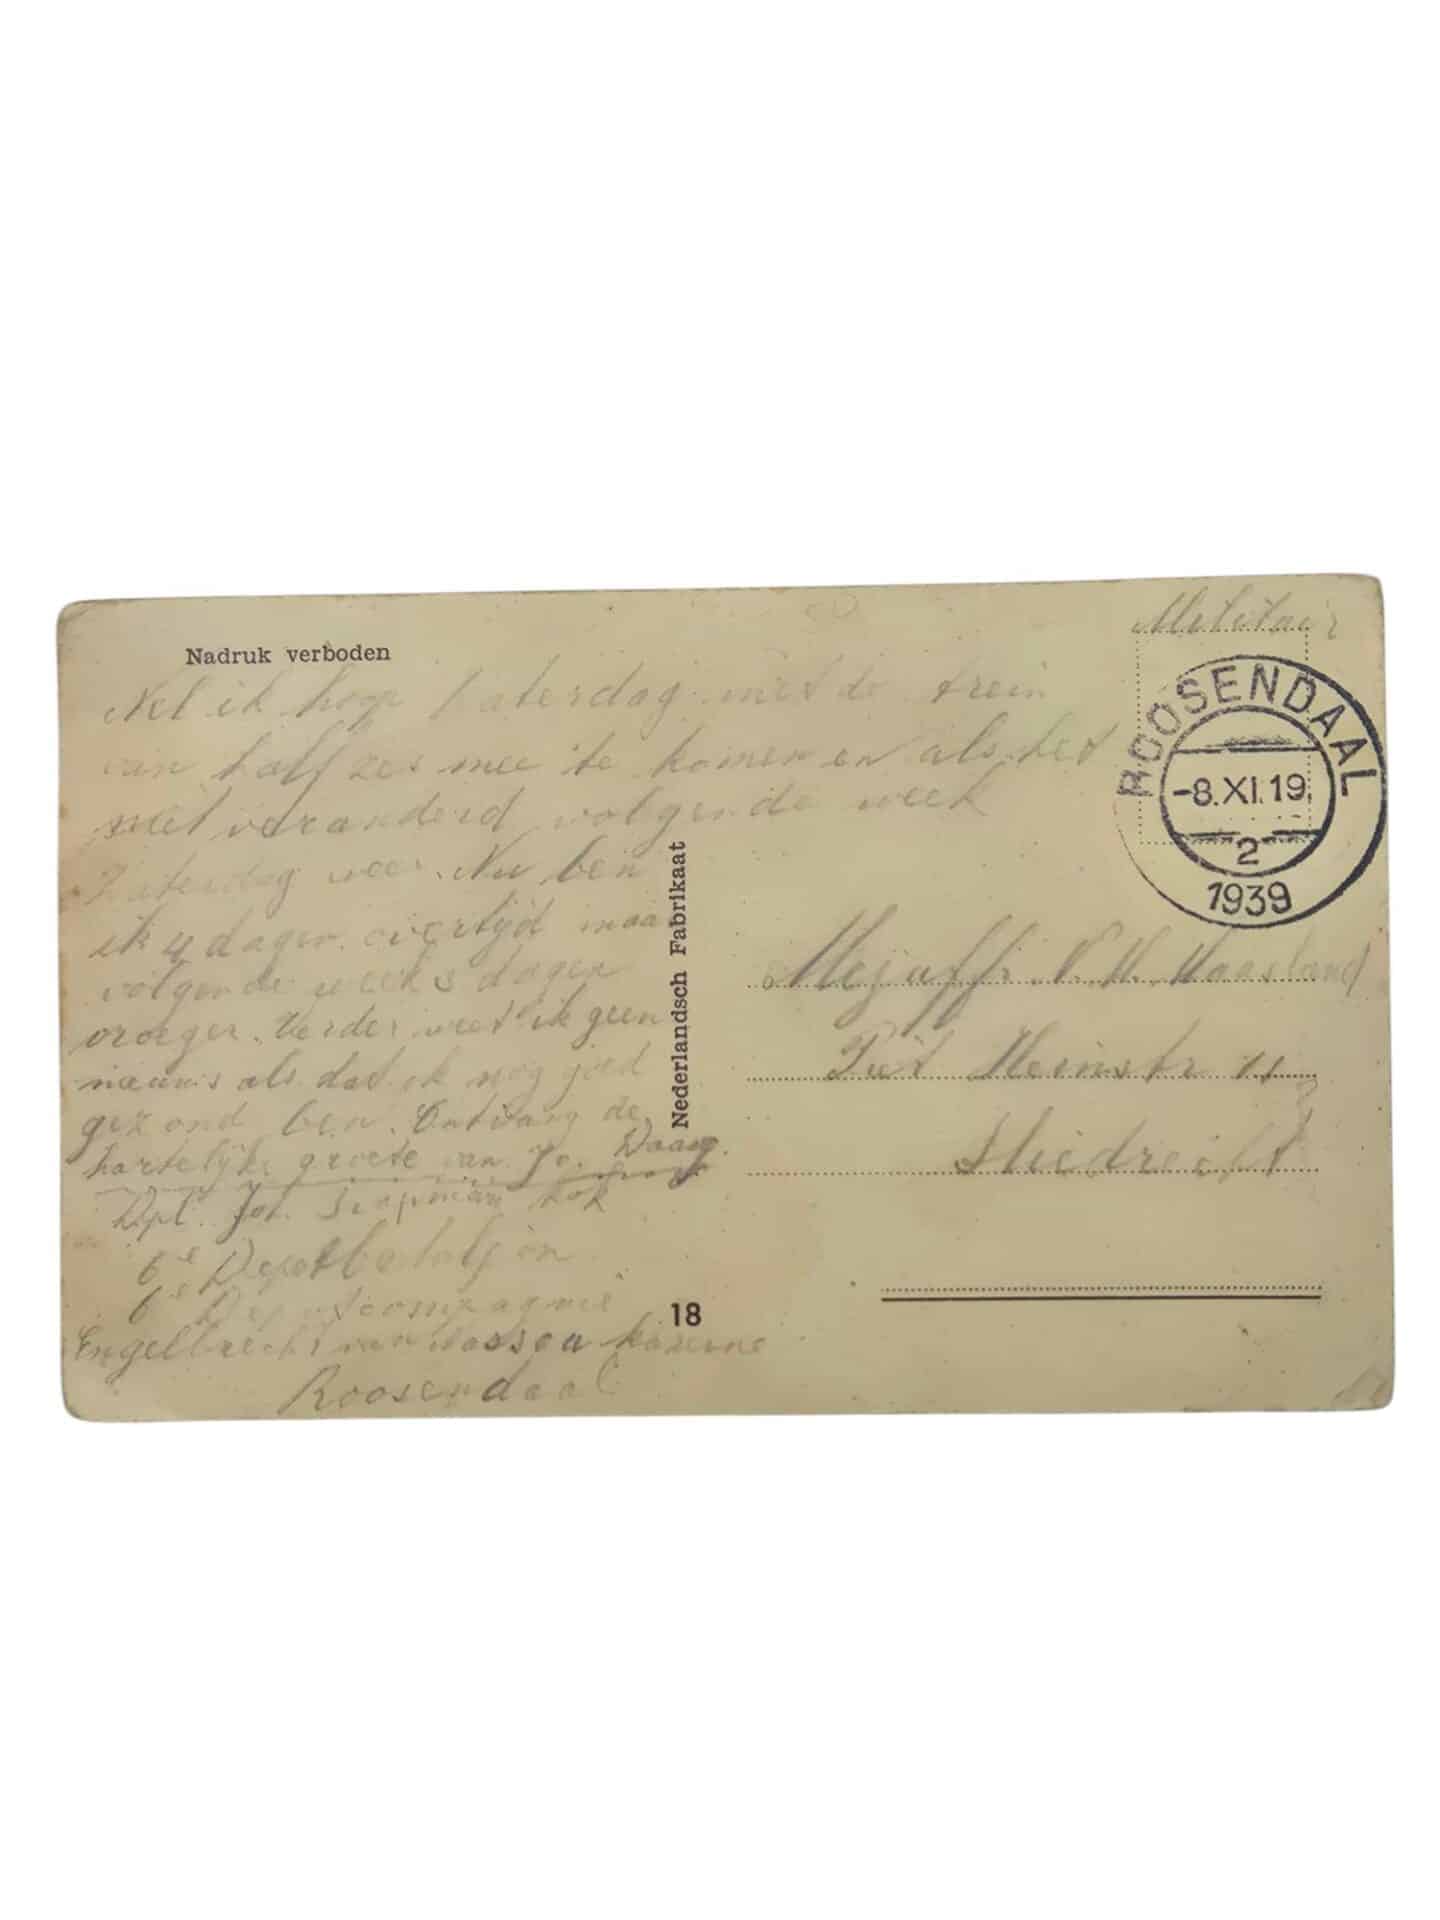 Nadruk verboden
Militair
ROOSENDAAL
-8.XI.19
2
1939
Nel ik hoop Zaterdag met de trein
van half zes mee te komen en als het
niet veranderd volgende week
Zaterdag weer. Nu ben
ik 4 dagen overtijd maar
volgende week 3 dagen
vroeger. Verder weet ik geen
nieuws als dat ik nog goed
gezond ben. Ontvang de
hartelijke groete van Jo. Daag.
Dpl. Joh. kok
6e Depotbataljon
6e Depotcompagnie
Engelbrecht van Nassau kazerne
Roosendaal
Nederlandsch Fabrikaat
18
Mejuffr. Maasland
Piet Heinstr 11
Sliedrecht